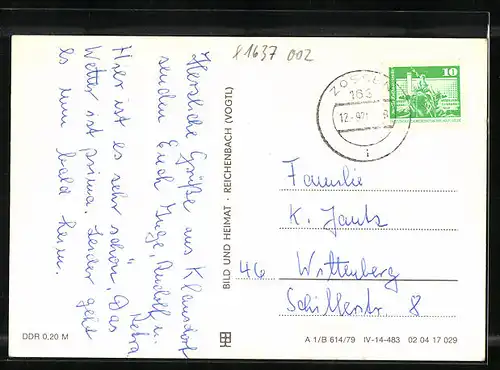 x1637 002
Herzliche Grüße aus Klausdorf
senden Euch Inge, Rudolf u.
Petra
Hier ist es sehr schön. Das
Wetter ist prima. Leider geht
es nun bald heim.
BILD UND HEIMAT · REICHENBACH (VOGTL)
DDR 0,20 M
ZOSSEN
163
12.-9
10
Familie
K. Jantz
46 Wittenberg
Schillerstr. 8
A 1/B 614/79 IV-14-483 02 04 17 029